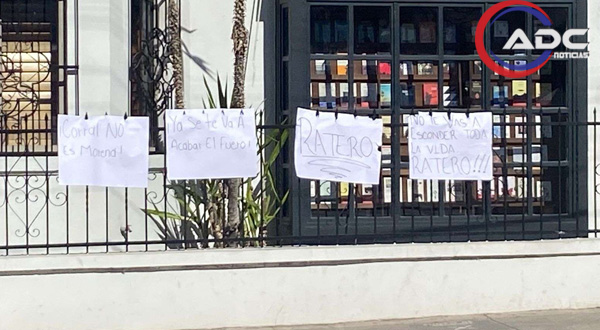 ADC
NOTICIAS
Corral NO
Es Morena!
Ya se te va A
Acabar El Fuero!
RATERO
NO TE VAS A
ESCONDER TODA
LA VIDA
RATERO!!!